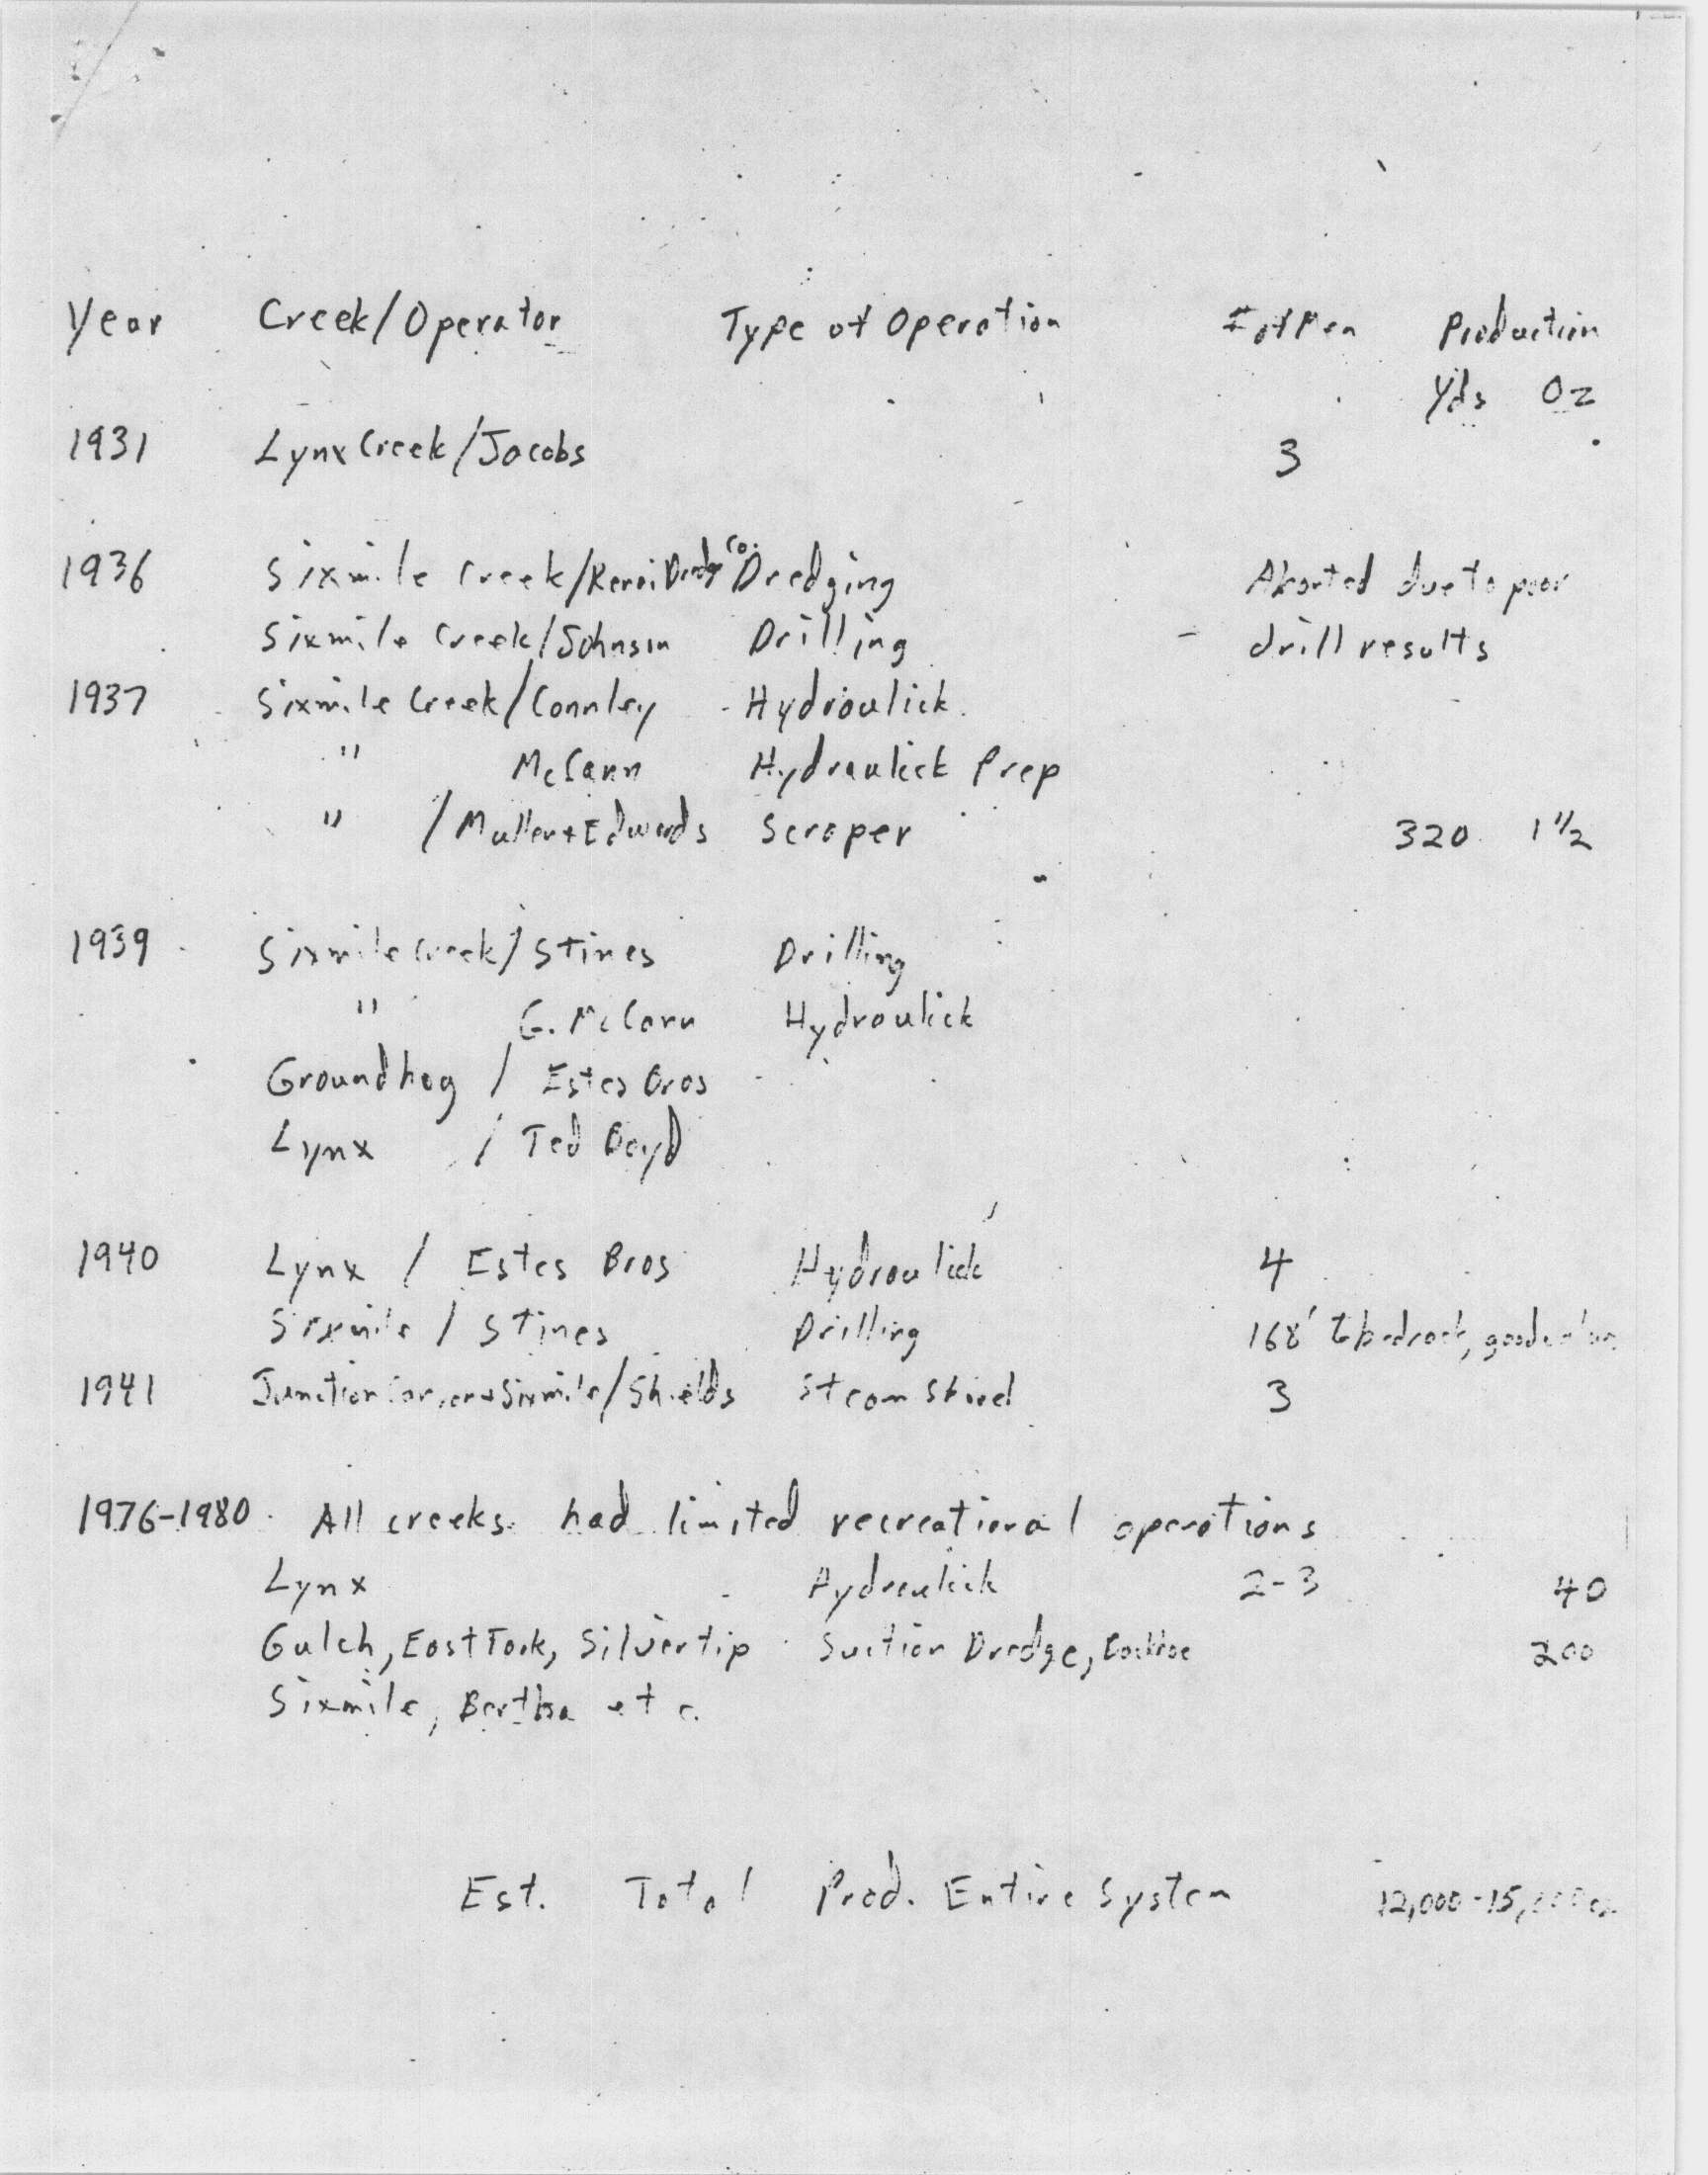 Year Creek/Operator Type of Operation # of Men Production
Yds Oz
1931 Lynx Creek/Jacobs 3
1936 Sixmile Creek/Kenai Dredge Co. Dredging Aborted due to poor
Sixmile Creek/Johnson Drilling - drill results
1937 Sixmile Creek/Connley Hydraulick
" McCann Hydraulick Prep
" /Muller+Edwards Scraper 320 1 1/2
1939 Sixmile Creek/Stines Drilling
" G. McCann Hydraulick
Groundhog / Estes Bros
Lynx / Ted Boyd
1940 Lynx / Estes Bros Hydraulick 4
Sixmile / Stines Drilling 168' to bedrock, good
1941 Junction + Sixmile/Shields Steam Shovel 3
1976-1980 All creeks had limited recreational operations
Lynx Hydraulick 2-3 40
Gulch, East Fork, Silvertip Suction Dredge, Backhoe 200
Sixmile, Bertha etc.
Est. Total Prod. Entire System 12,000-15,000 oz